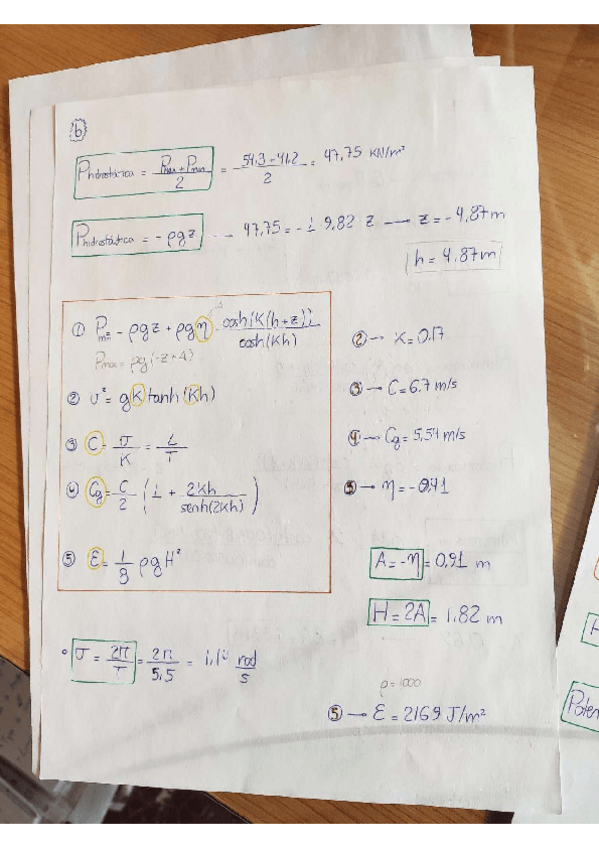 b
Phidrostática = Pmax + Pmin / 2 = 54,3 - 41,2 / 2 = 47,75 KN/m²
Phidrostática = - ρgz → 47,75 = - 1 · 9,82 · z → z = - 4,87 m
h = 4,87 m
① Pmin = - ρgz + ρgη · cosh(K(h+z)) / cosh(Kh)
Pmax = ρg(-z+A)
② σ² = gK tanh(Kh)
③ C = σ/K = L/T
④ Cg = C/2 (1 + 2Kh / senh(2Kh))
⑤ E = 1/8 ρgH²
② → K = 0.17
③ → C = 6.7 m/s
④ → Cg = 5,54 m/s
⑤ → η = -0,91
A = -η = 0,91 m
H = 2A = 1.82 m
σ = 2π/T = 2π/5,5 = 1,14 rad/s
ρ = 1000
⑤ → E = 2169 J/m²
H
Poten